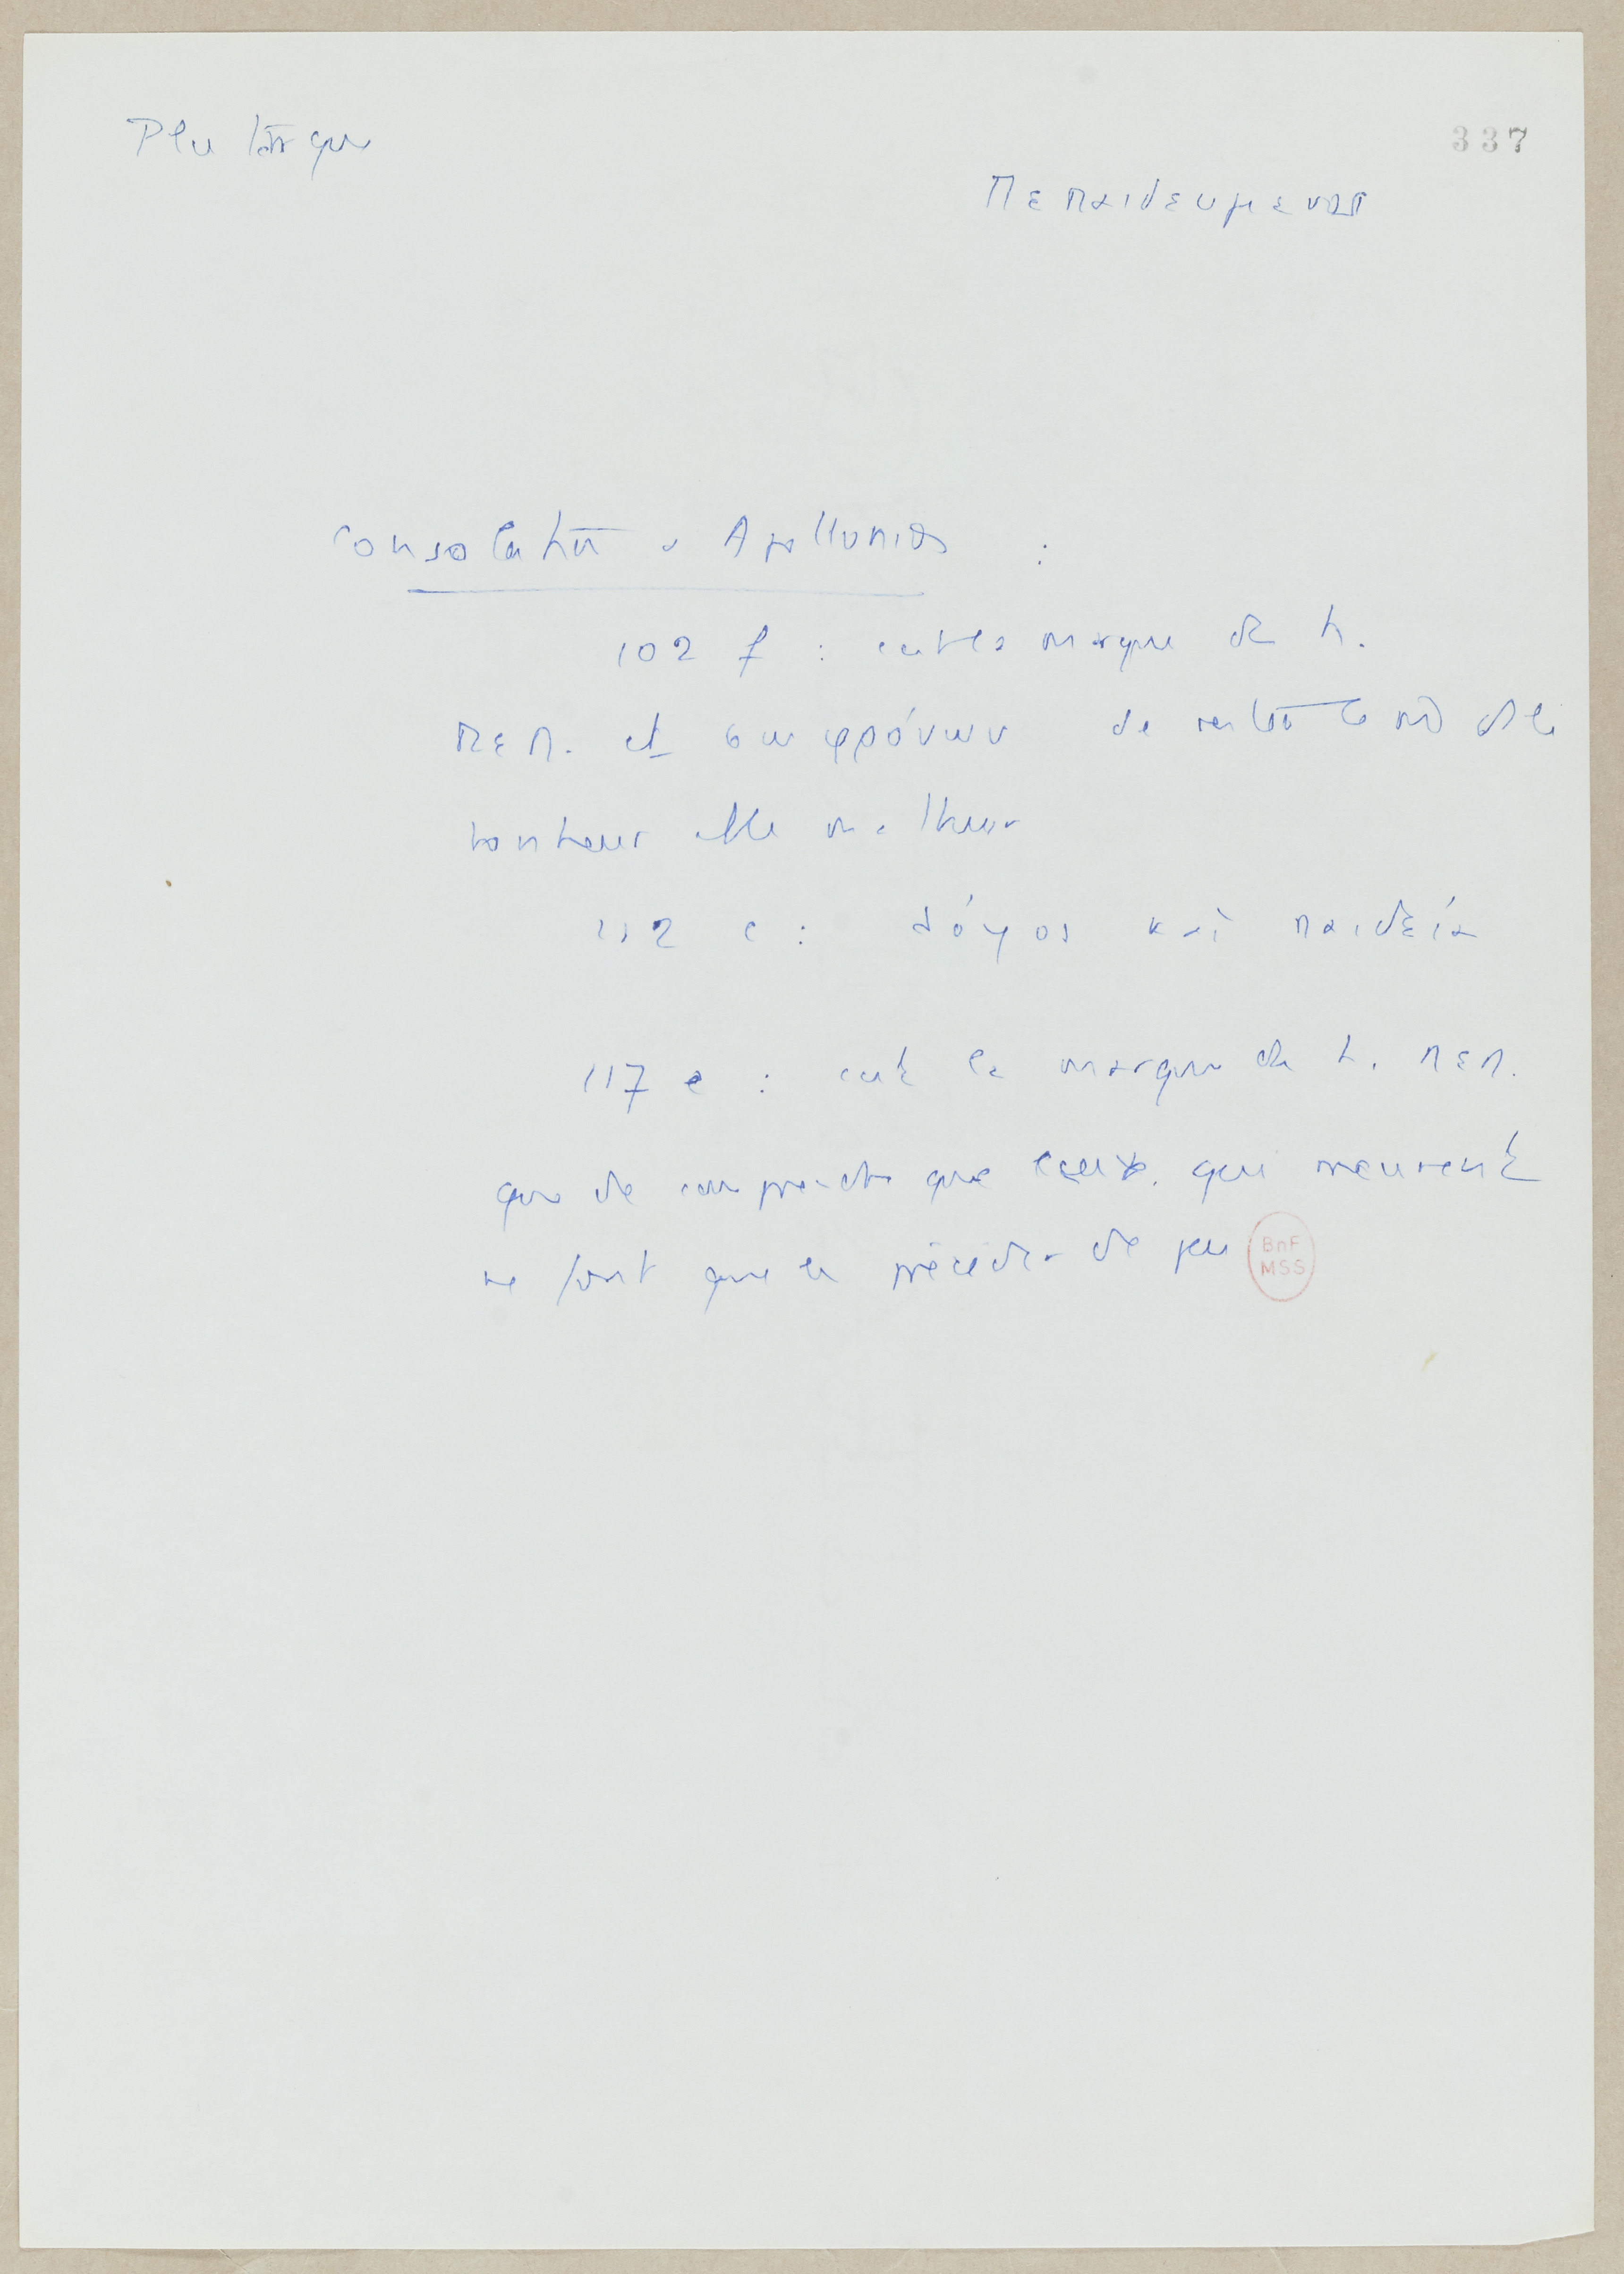 Plutarque
337
Πεπαιδευμενοι
Consolation à Apollonios :
102 f : c'est la marque de h.
πεπ. et σωφρόνων de rester le m̂ ds le
bonheur et le malheur
112 c : λόγος καὶ παιδεία
117 e : c'est la marque de h. πεπ.
que de comprendre que ceux qui meurent
ne font que les précéder de peu
BnF
MSS